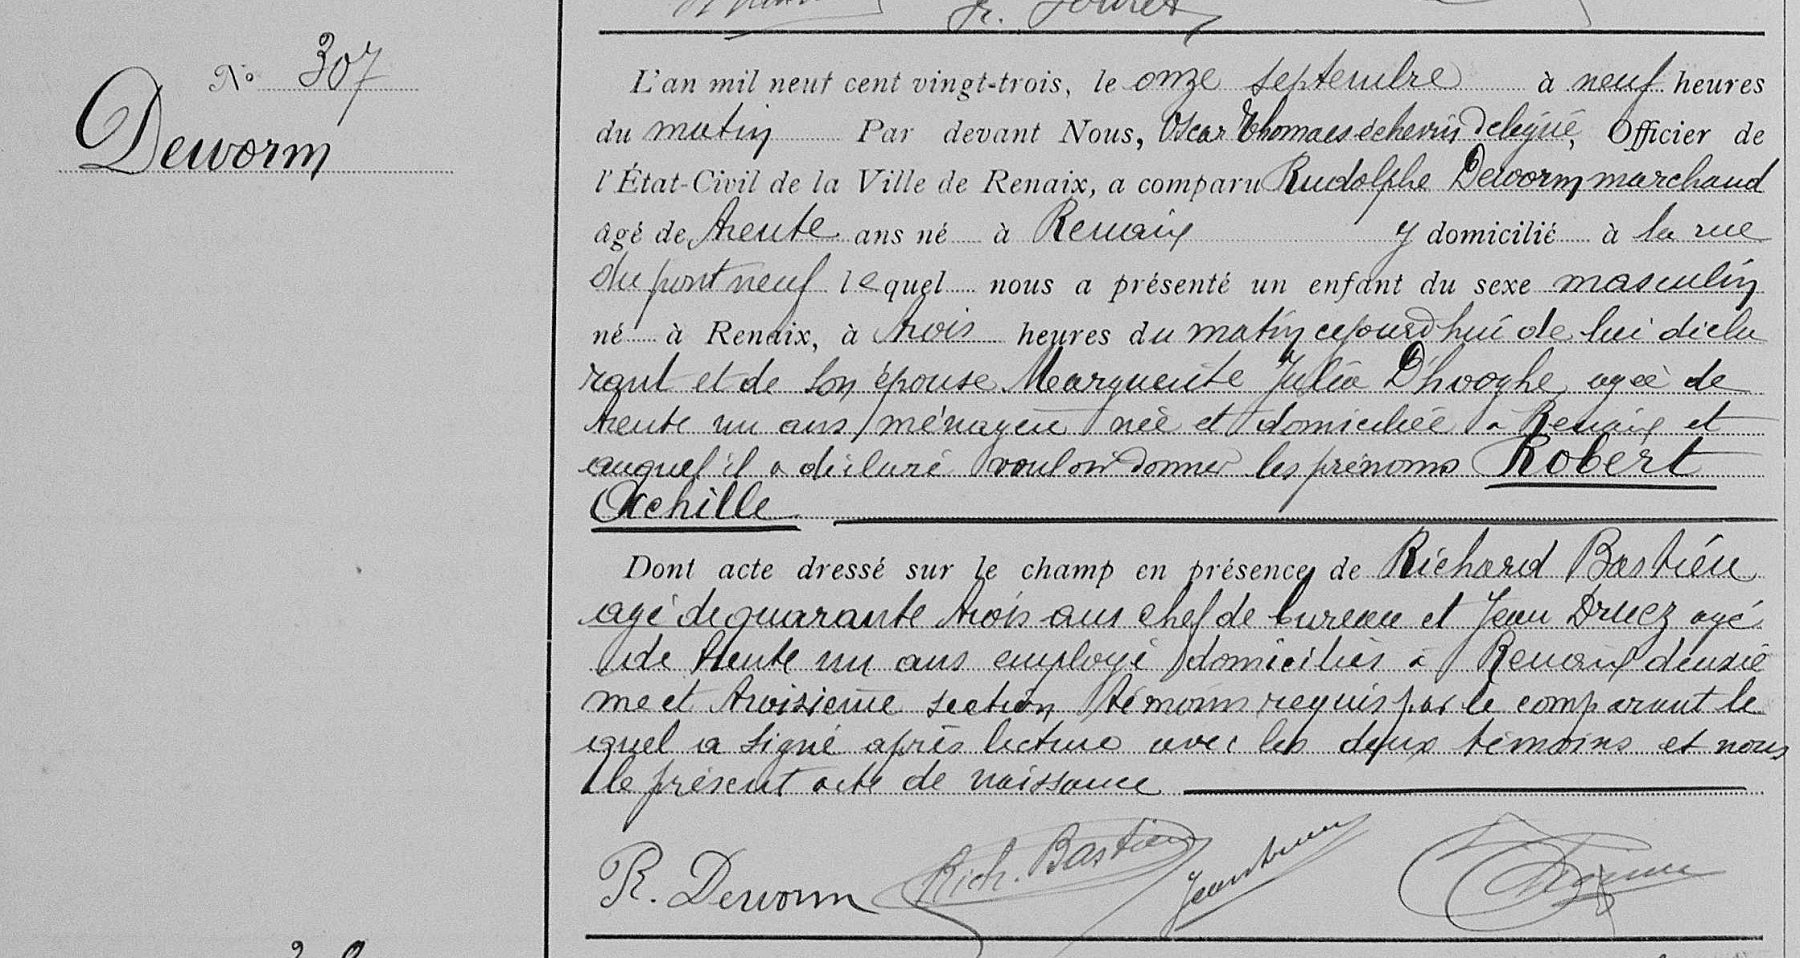 R. Fouret
N° 307
Deworm
L'an mil neuf cent vingt-trois, le onze septembre à neuf heures
du matin Par devant Nous, Oscar Thomaes échevin délégué, Officier de
l'État-Civil de la Ville de Renaix, a comparu Rudolphe Deworm marchand
âgé de trente ans né à Renaix y domicilié à la rue
du pont neuf lequel nous a présenté un enfant du sexe masculin
né à Renaix, à trois heures du matin cejourd'hui de lui décla
rant et de son épouse Marguerite Julia D'hooghe, agée de
trente un ans, ménagère née et domiciliée à Renaix et
auquel il a déclaré vouloir donner les prénoms Robert
Achille
Dont acte dressé sur le champ en présence de Richard Bastien
agé de quarante trois ans chef de bureau et Jean Druez agé
de trente un ans employé domiciliés à Renaix deuxiè
me et troisième section témoins requis par le comparant le
quel a signé après lecture avec les deux témoins et nous
le présent acte de naissance
R. Deworm Rich. Bastien